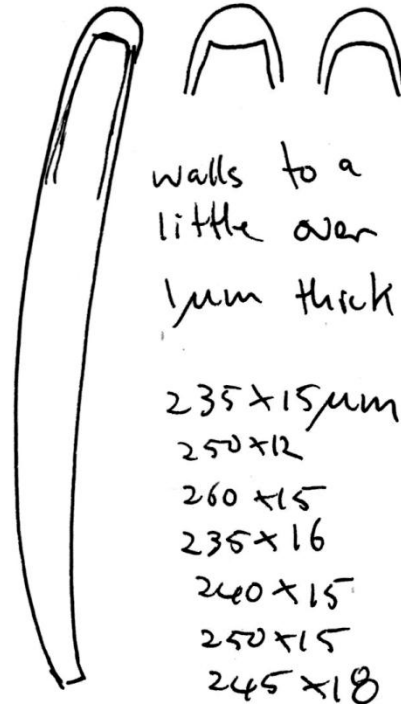 walls to a
little over
1µm thick
235×15µm
250×12
260×15
235×16
240×15
250×15
245×18